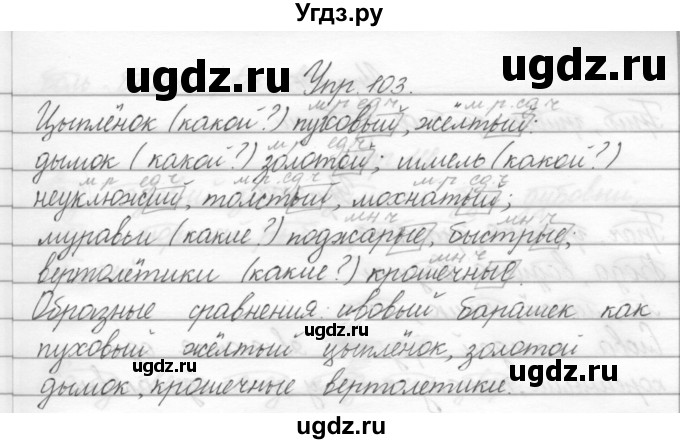 Угдз.ру
Упр. 103.
м.р. ед.ч м.р. ед.ч
Цыплёнок (какой?) пуховый, жёлтый;
м.р. ед.ч
дымок (какой?) золотой; шмель (какой?)
м.р. ед.ч м.р. ед.ч м.р. ед.ч
неуклюжий, толстый, мохнатый;
мн.ч мн.ч
муравьи (какие?) поджарые, быстрые;
мн.ч
вертолётики (какие?) крошечные.
Образные сравнения: ивовый барашек как
пуховый жёлтый цыплёнок, золотой
дымок, крошечные вертолетики.
ugdz.ru ugdz.ru
ugdz.ru ugdz.ru
ugdz.ru
ugdz.ru ugdz.ru
ugdz.ru
ugdz.ru ugdz.ru
ugdz.ru